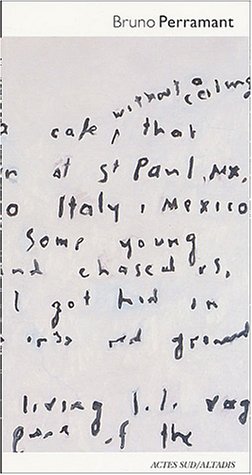 Bruno Perramant
without a
ceiling
cafe, that
at St Paul, MX,
o Italy, Mexico
Some young
nd chased us,
I got hid in
red ground
living
of the
ACTES SUD/ALTADIS